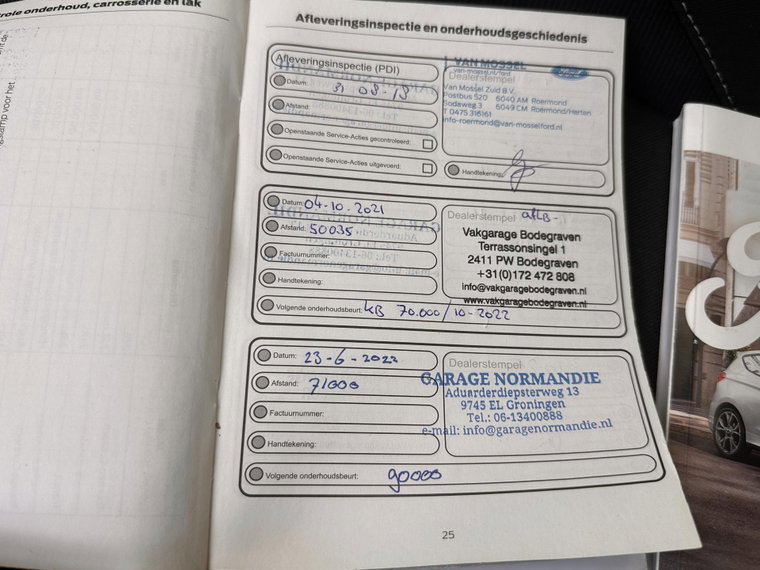 role onderhoud, carrosserie en lak
stamp voor het
Afleveringsinspectie en onderhoudsgeschiedenis
Afleveringsinspectie (PDI)
Datum: 31 08-18
Afstand:
Openstaande Service-Acties gecontroleerd:
Openstaande Service-Acties uitgevoerd:
VAN MOSSEL
van-mossel.nl/ford
Ford
Dealerstempel
Van Mossel Zuid B.V.
Postbus 520 6040 AM Roermond
Sodaweg 3 6049 CM Roermond/Herten
T 0475 316161
info-roermond@van-mosselford.nl
Handtekening:
Datum: 04-10-2021
Afstand: 50035
Factuurnummer:
Handtekening:
Volgende onderhoudsbeurt: KB 70.000/10-2022
Dealerstempel
Vakgarage Bodegraven
Terrassonsingel 1
2411 PW Bodegraven
+31(0)172 472 808
info@vakgaragebodegraven.nl
www.vakgaragebodegraven.nl
Datum: 23-6-2022
Afstand: 71000
Factuurnummer:
Handtekening:
Volgende onderhoudsbeurt: 90000
Dealerstempel
GARAGE NORMANDIE
Aduarderdiepsterweg 13
9745 EL Groningen
Tel.: 06-13400888
e-mail: info@garagenormandie.nl
25